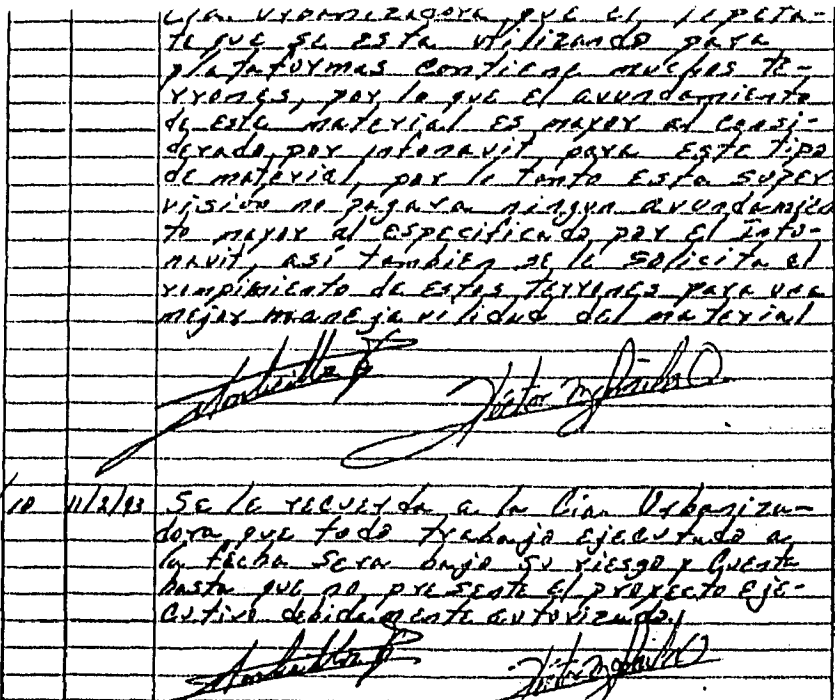 Cia. Urbanizadora, que el tepeta-
te que se esta utilizando para
plataformas contiene muchos te-
rrones, por lo que el avundamiento
de este material es mayor al consi-
derado por infonavit para este tipo
de material, por lo tanto esta super
visión no pagara ningun avundamien
to mayor al especificado por el Info-
navit, así tambien se le solicita el
rompimiento de estos terrones para una
mejor manejavilidad del material
Héctor
10 11/2/93 Se le recuerda a la Cia. Urbaniza-
dora, que todo trabajo ejecutado a
la fecha sera bajo su riesgo y cuenta
hasta que no presente el proyecto eje-
cutivo debidamente autorizado.
Héctor